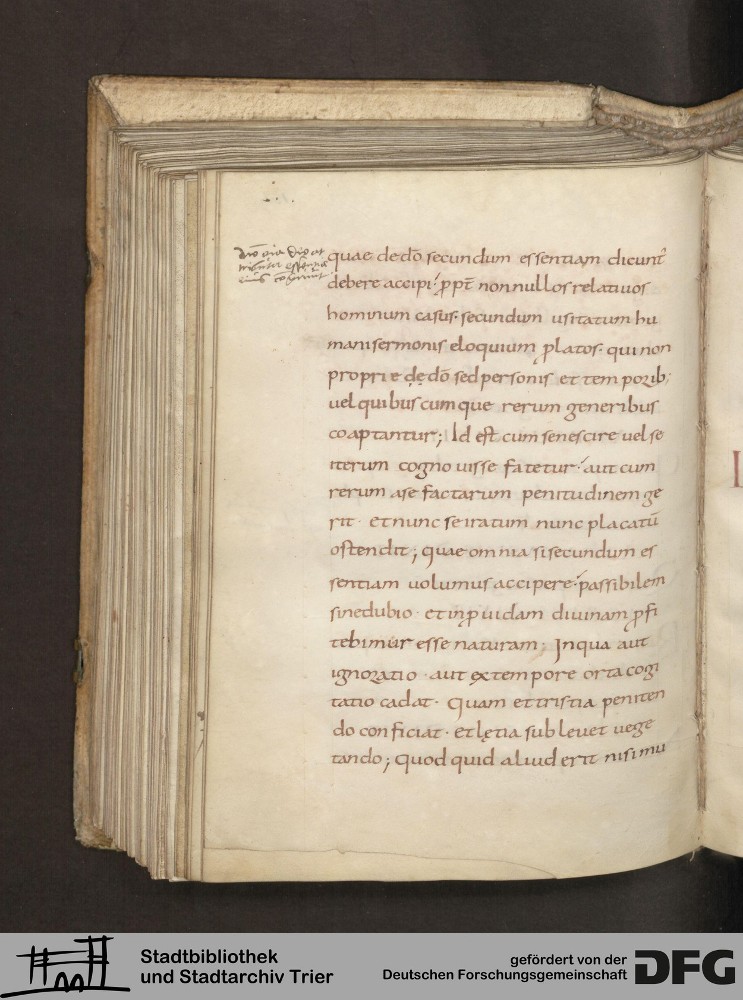 quae de dō secundum essentiam dicunt̄
debere accipi. ꝓpt̄ nonnullos relatiuos
hominum casus. secundum usitatum hu
mani sermonis eloquium p̱latos. qui non
proprie de dō sed personis et temporib;
uel quibuscumque rerum generibus
coaptantur; Id est cum se nescire uel se
iterum cognouisse fatetur. aut cum
rerum a se factarum penitudinem ge
rit. et nunc se iratum nunc placatū
ostendit; quae omnia si secundum es
sentiam uolumus accipere. passibilem
sine dubio. et inꝓuidam diuinam ꝓfi
tebimur esse naturam; In qua aut
ignoratio. aut ex tempore orta cogi
tatio cadat. quam et tristia peniten
do conficiat. et lętia subleuet uege
tando; quod quid aliud erit nisi mu
Stadtbibliothek
und Stadtarchiv Trier
gefördert von der
Deutschen Forschungsgemeinschaft
DFG